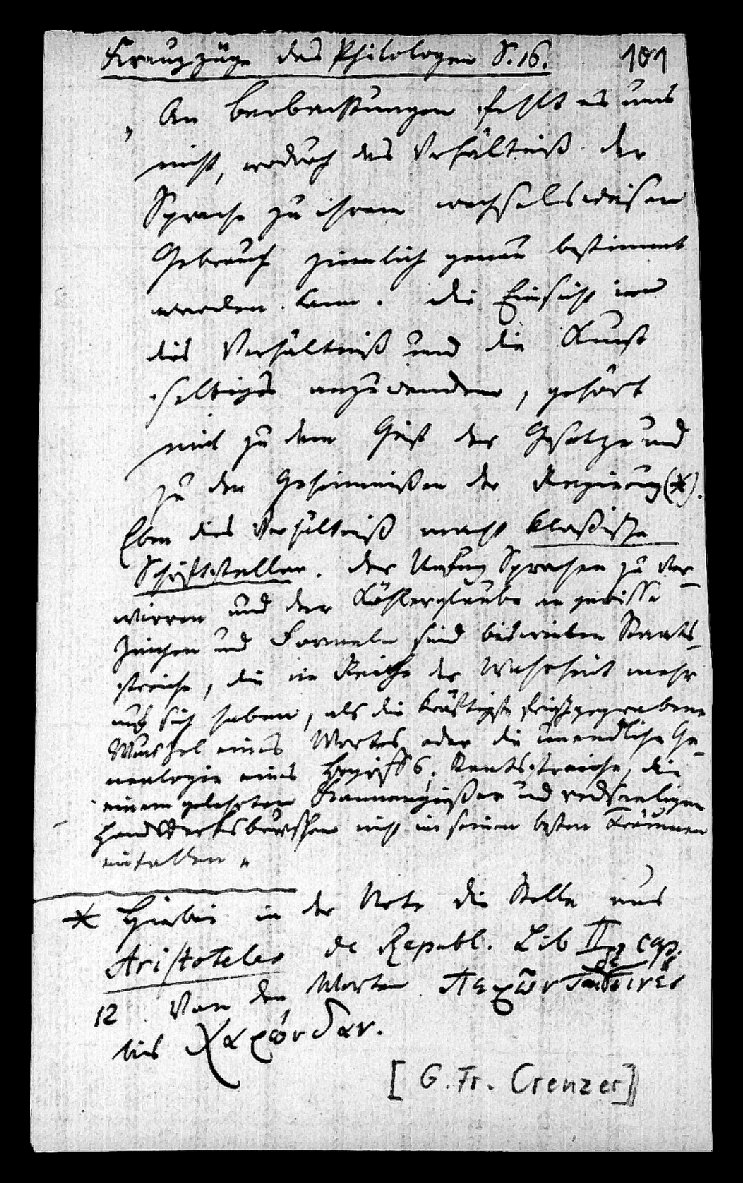 Kreuzzüge des Philologen S. 16. 101
„An Beobachtungen fehlt es uns
nicht, wodurch das Verhältniß der
Sprache zu ihrem wechselsweisen
Gebrauch ziemlich genau bestimmt
werden kann. Die Einsicht in
dies Verhältniß und die Kunst
selbiges anzuwenden, gehört
mit zu dem Geist der Gesetze und
zu den Geheimnißen der Regierung (*).
Eben dies Verhältniß macht klaßische
Schriftsteller. Der Unfug Sprachen zu ver-
wirren und der Köhlerglaube an gewisse
Zeichen und Formeln sind bisweilen Staats-
streiche, die im Reiche der Wahrheit mehr
auf sich haben, als die kräftigste, frischgegrabene
Wurzel eines Wortes oder die unendliche Ge-
nealogie eines Begriffs; Staatsstreiche, die
einem gelehrten Kannengießer und redseeligen
Handwerksburschen nicht in seinen besten Träumen
einfallen"
* Hierbei in der Note die Stelle aus
Aristoteles de Republ. Lib II cap.
12 Von den Worten
bis Χαρώνδαν.
[G. Fr. Creuzer]